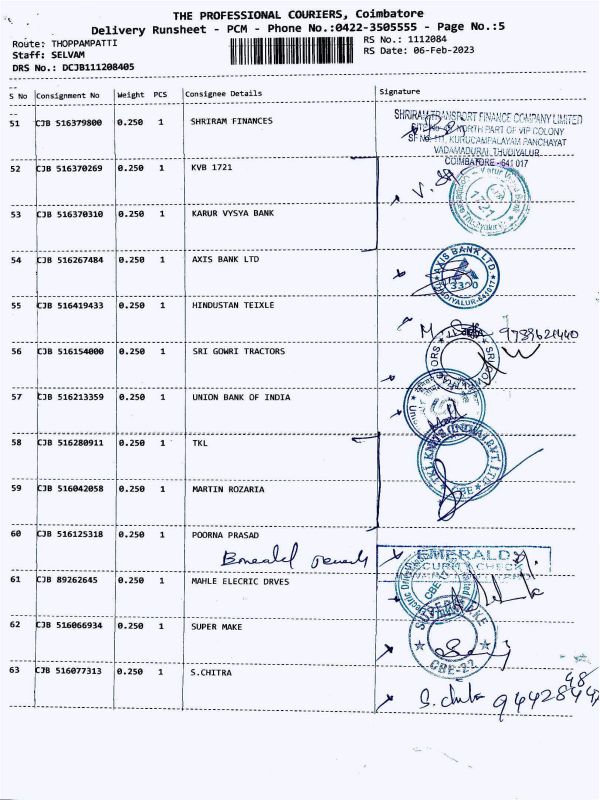 THE PROFESSIONAL COURIERS, Coimbatore
Delivery Runsheet - PCM - Phone No.:0422-3505555 - Page No.:5
Route: THOPPAMPATTI
Staff: SELVAM
DRS No.: DCJB111208405
RS No.: 1112084
RS Date: 06-Feb-2023
S No Consignment No Weight PCS Consignee Details Signature
51 CJB 516379800 0.250 1 SHRIRAM FINANCES
SHRIRAM TRANSPORT FINANCE COMPANY LIMITED
NORTH PART OF VIP COLONY
KURUCAMPALAYAM PANCHAYAT
VADAMADURAI, THUDIYALUR
COIMBATORE - 641 017
52 CJB 516370269 0.250 1 KVB 1721
1721
53 CJB 516370310 0.250 1 KARUR VYSYA BANK
54 CJB 516267484 0.250 1 AXIS BANK LTD
AXIS BANK LTD
THUDIYALUR-641017
55 CJB 516419433 0.250 1 HINDUSTAN TEIXLE
9789621440
56 CJB 516154000 0.250 1 SRI GOWRI TRACTORS
57 CJB 516213359 0.250 1 UNION BANK OF INDIA
58 CJB 516280911 0.250 1 TKL
TKL KNITS (INDIA) PVT. LTD
CBE
59 CJB 516042058 0.250 1 MARTIN ROZARIA
60 CJB 516125318 0.250 1 POORNA PRASAD
EMERALD
SECURITY CHECK
61 CJB 89262645 0.250 1 MAHLE ELECRIC DRVES
62 CJB 516066934 0.250 1 SUPER MAKE
CBE-22
63 CJB 516077313 0.250 1 S.CHITRA